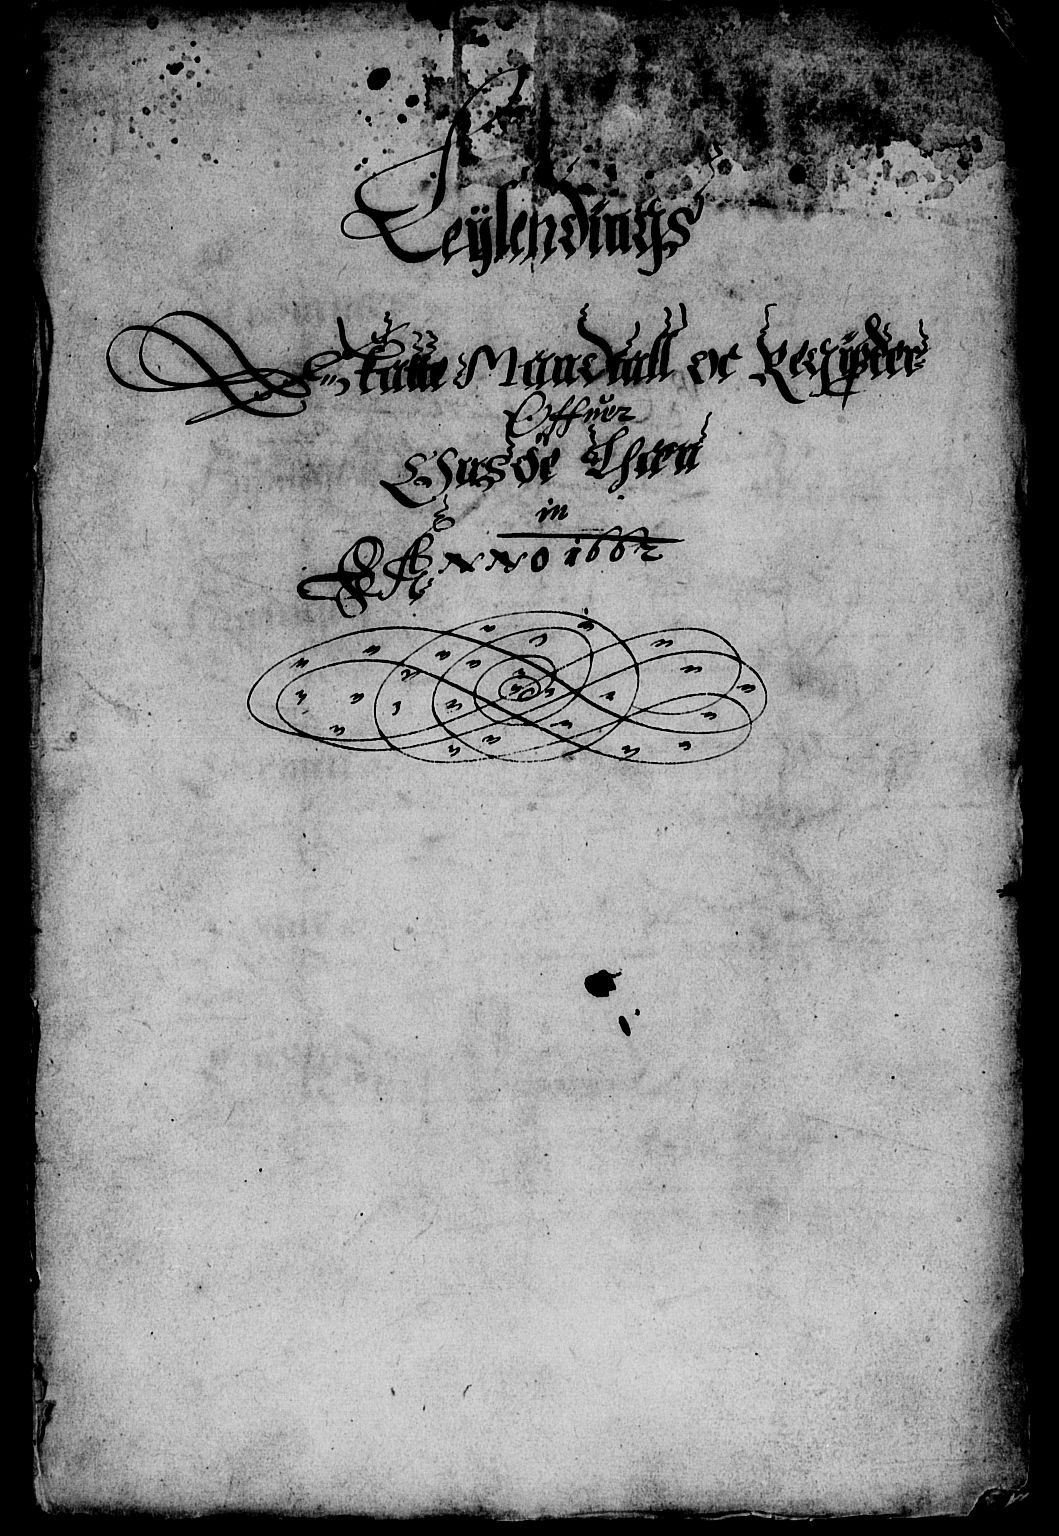 Leÿlendings
Skatte Mandtall oc Register
Offuer
Gusdøe Lhæn
in
ANNO 1662